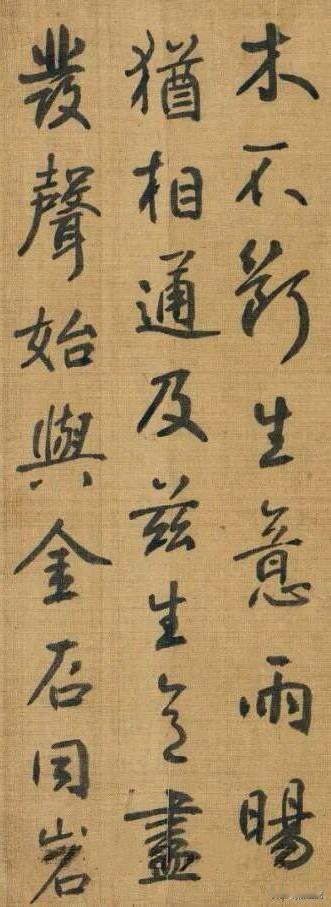 木不斷生意雨暘
猶相通及兹生意盡
發聲始與金石同岩